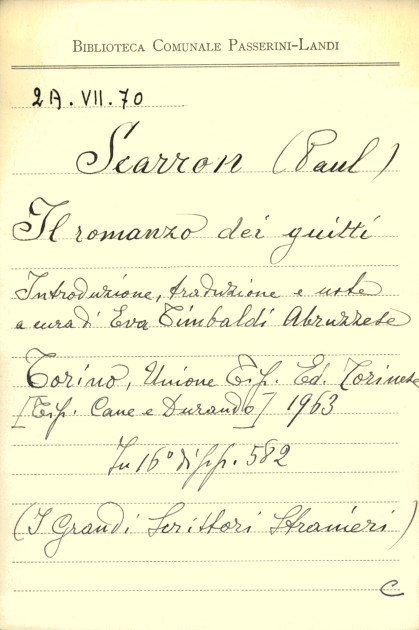 BIBLIOTECA COMUNALE PASSERINI-LANDI
2A. VII. 70
Scarron (Paul)
Il romanzo dei guitti
Introduzione, traduzione e note
a cura di Eva Timbaldi Abruzzese
Torino, Unione Tip. Ed. Torinese
[Tip. Cane e Durando] 1963
In 16° di pp. 582
(I Grandi Scrittori Stranieri)
C